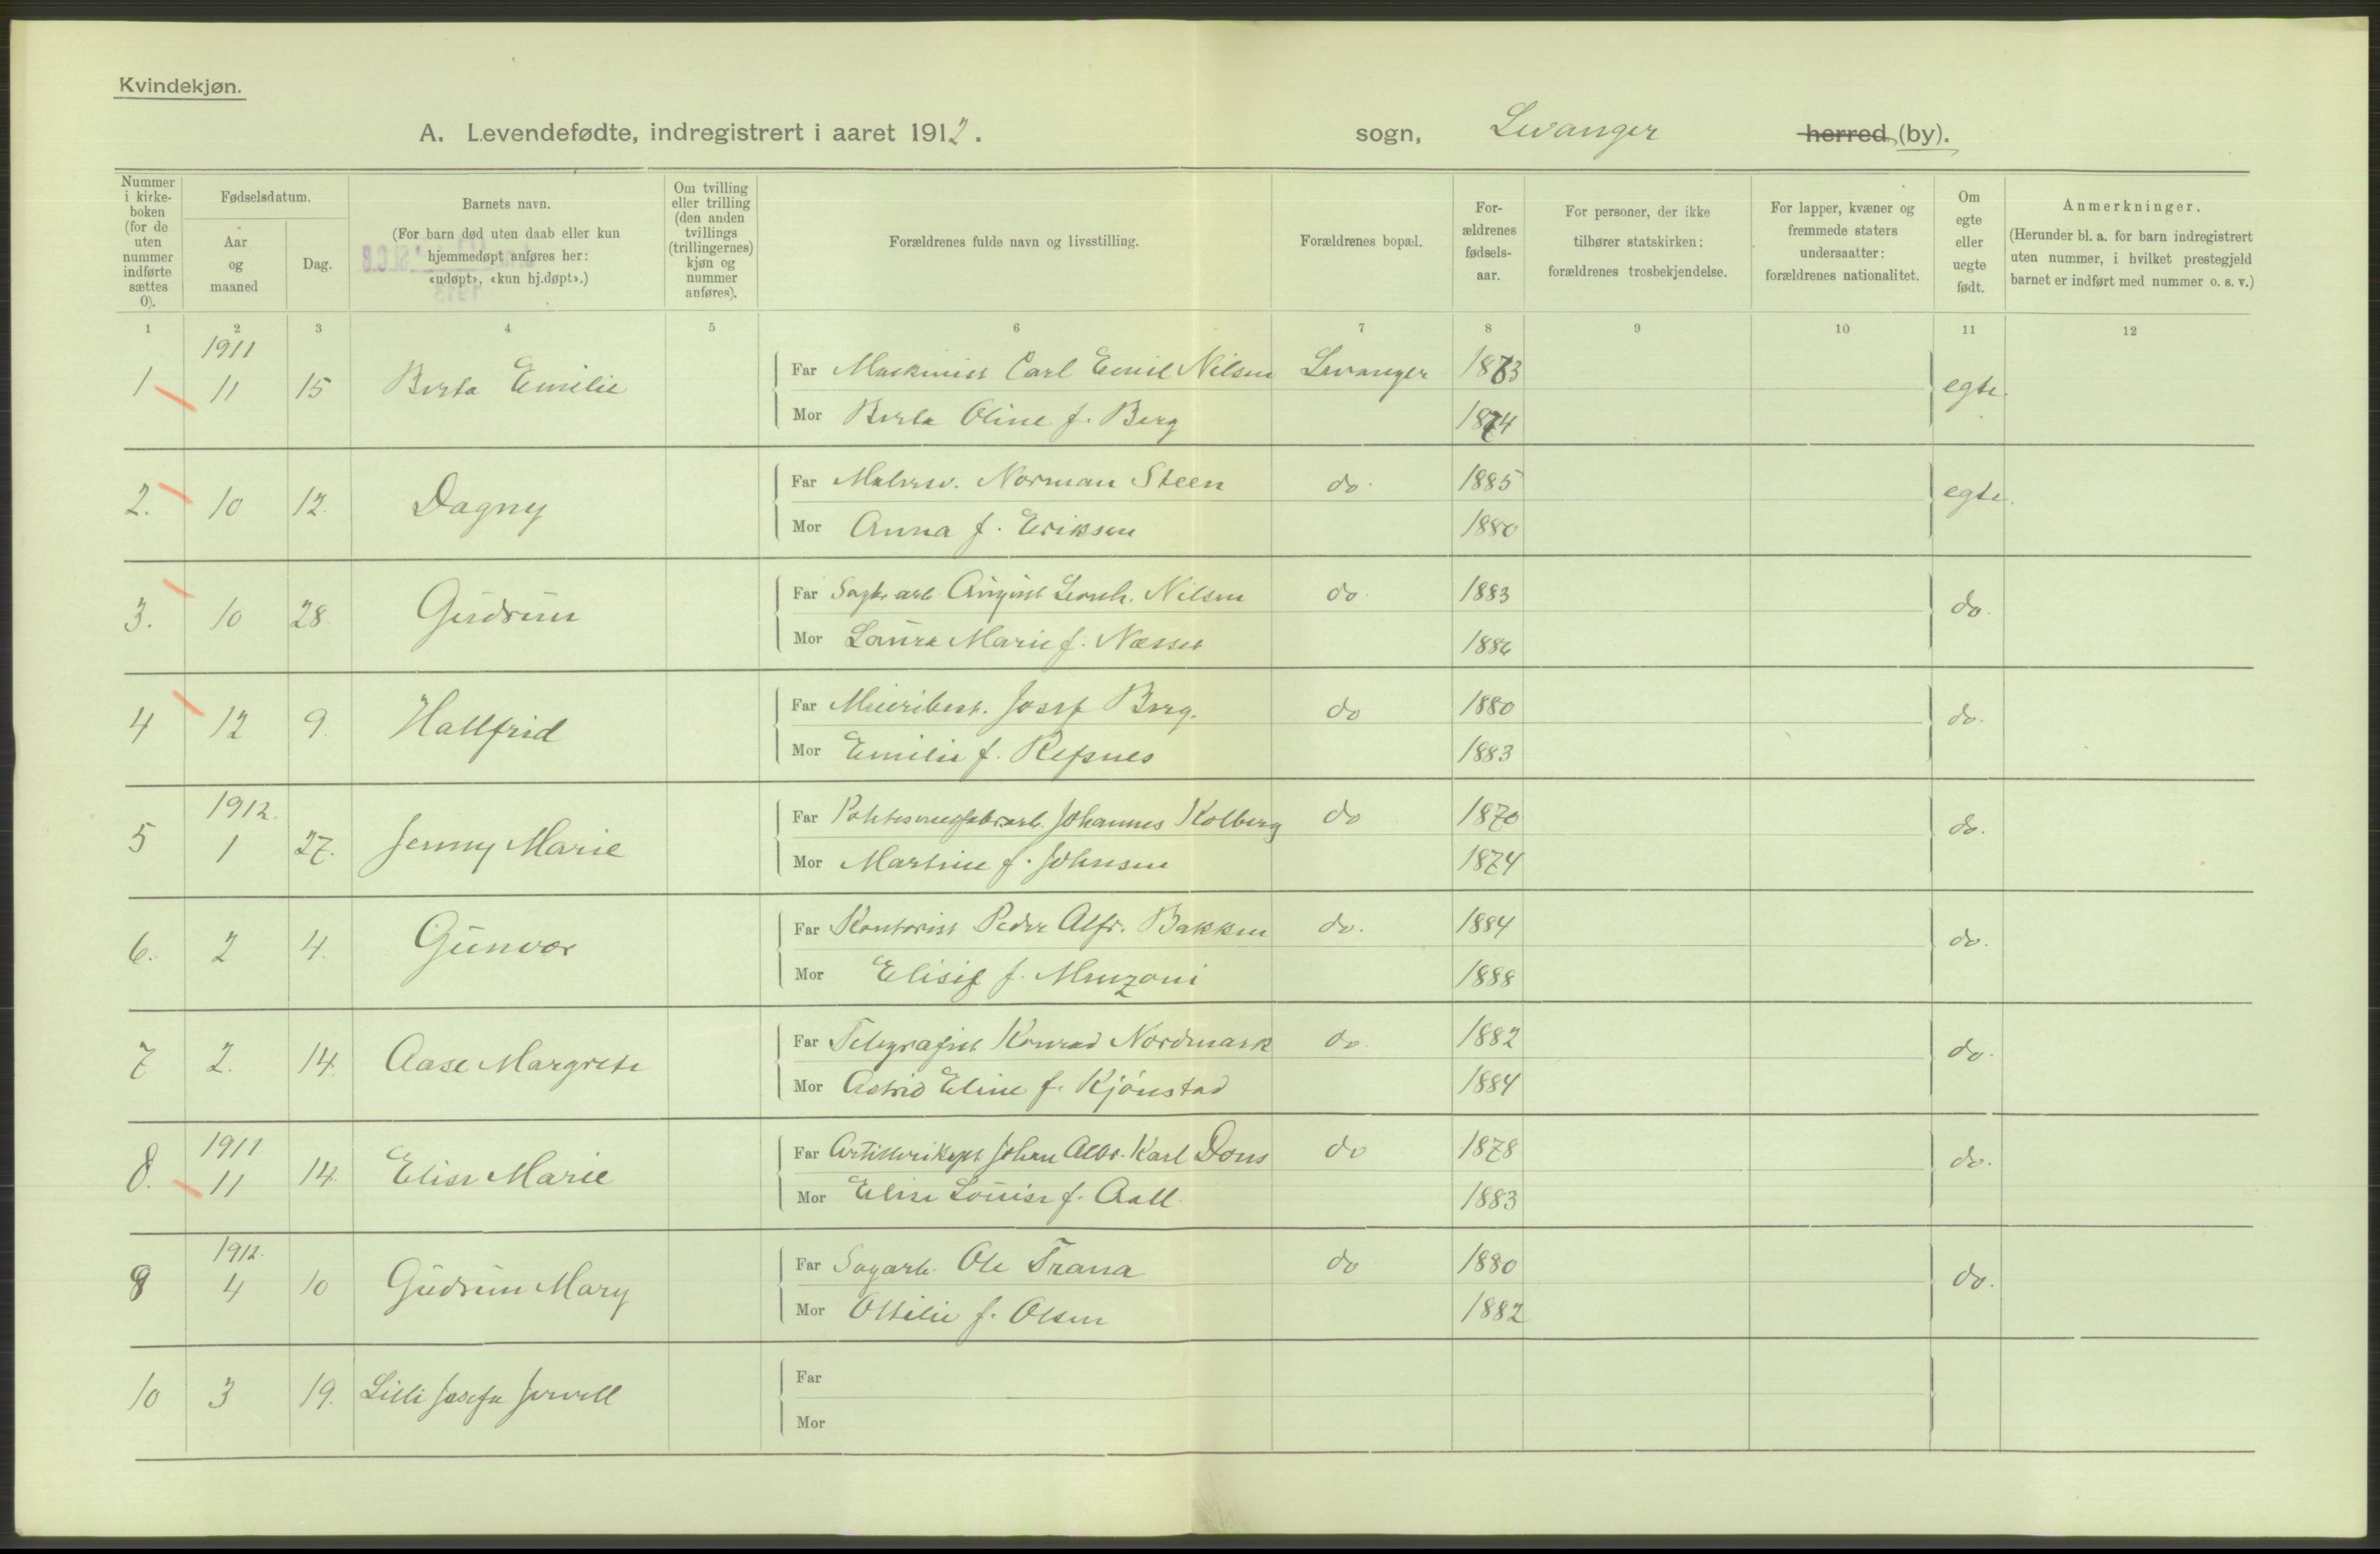 Kvindekjøn.
A. Levendefødte, indregistrert i aaret 1912. sogn, Levanger herred (by).
Nummer i kirkeboken (for de uten nummer indførte sættes 0).
Fødselsdatum.
Aar og maaned
Dag.
Barnets navn.
(For barn død uten daab eller kun hjemmedøpt anføres her: «udøpt», «kun hj.døpt».)
Om tvilling eller trilling (den anden tvillings (trillingernes) kjøn og nummer anføres).
Forældrenes fulde navn og livsstilling.
Forældrenes bopæl.
Forældrenes fødselsaar.
For personer, der ikke tilhører statskirken: forældrenes trosbekjendelse.
For lapper, kvæner og fremmede staters undersaatter: forældrenes nationalitet.
Om egte eller uegte født.
Anmerkninger.
(Herunder bl. a. for barn indregistrert uten nummer, i hvilket prestegjeld barnet er indført med nummer o. s. v.)
1 2 3 4 5 6 7 8 9 10 11 12
1911
1 11 15 Berta Emilie Far Maskinist Carl Emil Nilsen Levanger 1873 egte.
Mor Berta Oline f. Berg 1874
2. 10 12. Dagny Far Malersv. Norman Steen do. 1885 egte.
Mor Anna f. Eriksen 1880
3. 10 28. Gudrun Far Sagbr.arb. August Leonh. Nilsen do. 1883 do.
Mor Laura Marie f. Næsset 1886
4 12 9. Hallfrid Far Meieribest. Josef Berg. do 1880 do.
Mor Emilie f. Refsnes 1883
1912.
5 1 27. Jenny Marie Far Johannes Kolberg do 1870 do.
Mor Martine f. Johnsen 1874
6. 2 4. Gunvor Far Kontorist Peder Alfr. Bakken do. 1884 do.
Mor Elisif f. Menzoni 1888
7 2. 14. Aase Margrete Far Telegrafist Konrad Nordmark do. 1882 do.
Mor Astrid Eline f. Kjønstad 1884
1911
8. 11 14. Elise Marie Far Artillerikapt. Johan Albr. Karl Dons do 1878 do.
Mor Elise Louise f. Aall. 1883
1912.
9 4 10 Gudrun Mary Far Sagarb. Ole Trana do 1880 do.
Mor Ottilie f. Olsen 1882
10 3 19. Lilli Josefa Jervell Far
Mor